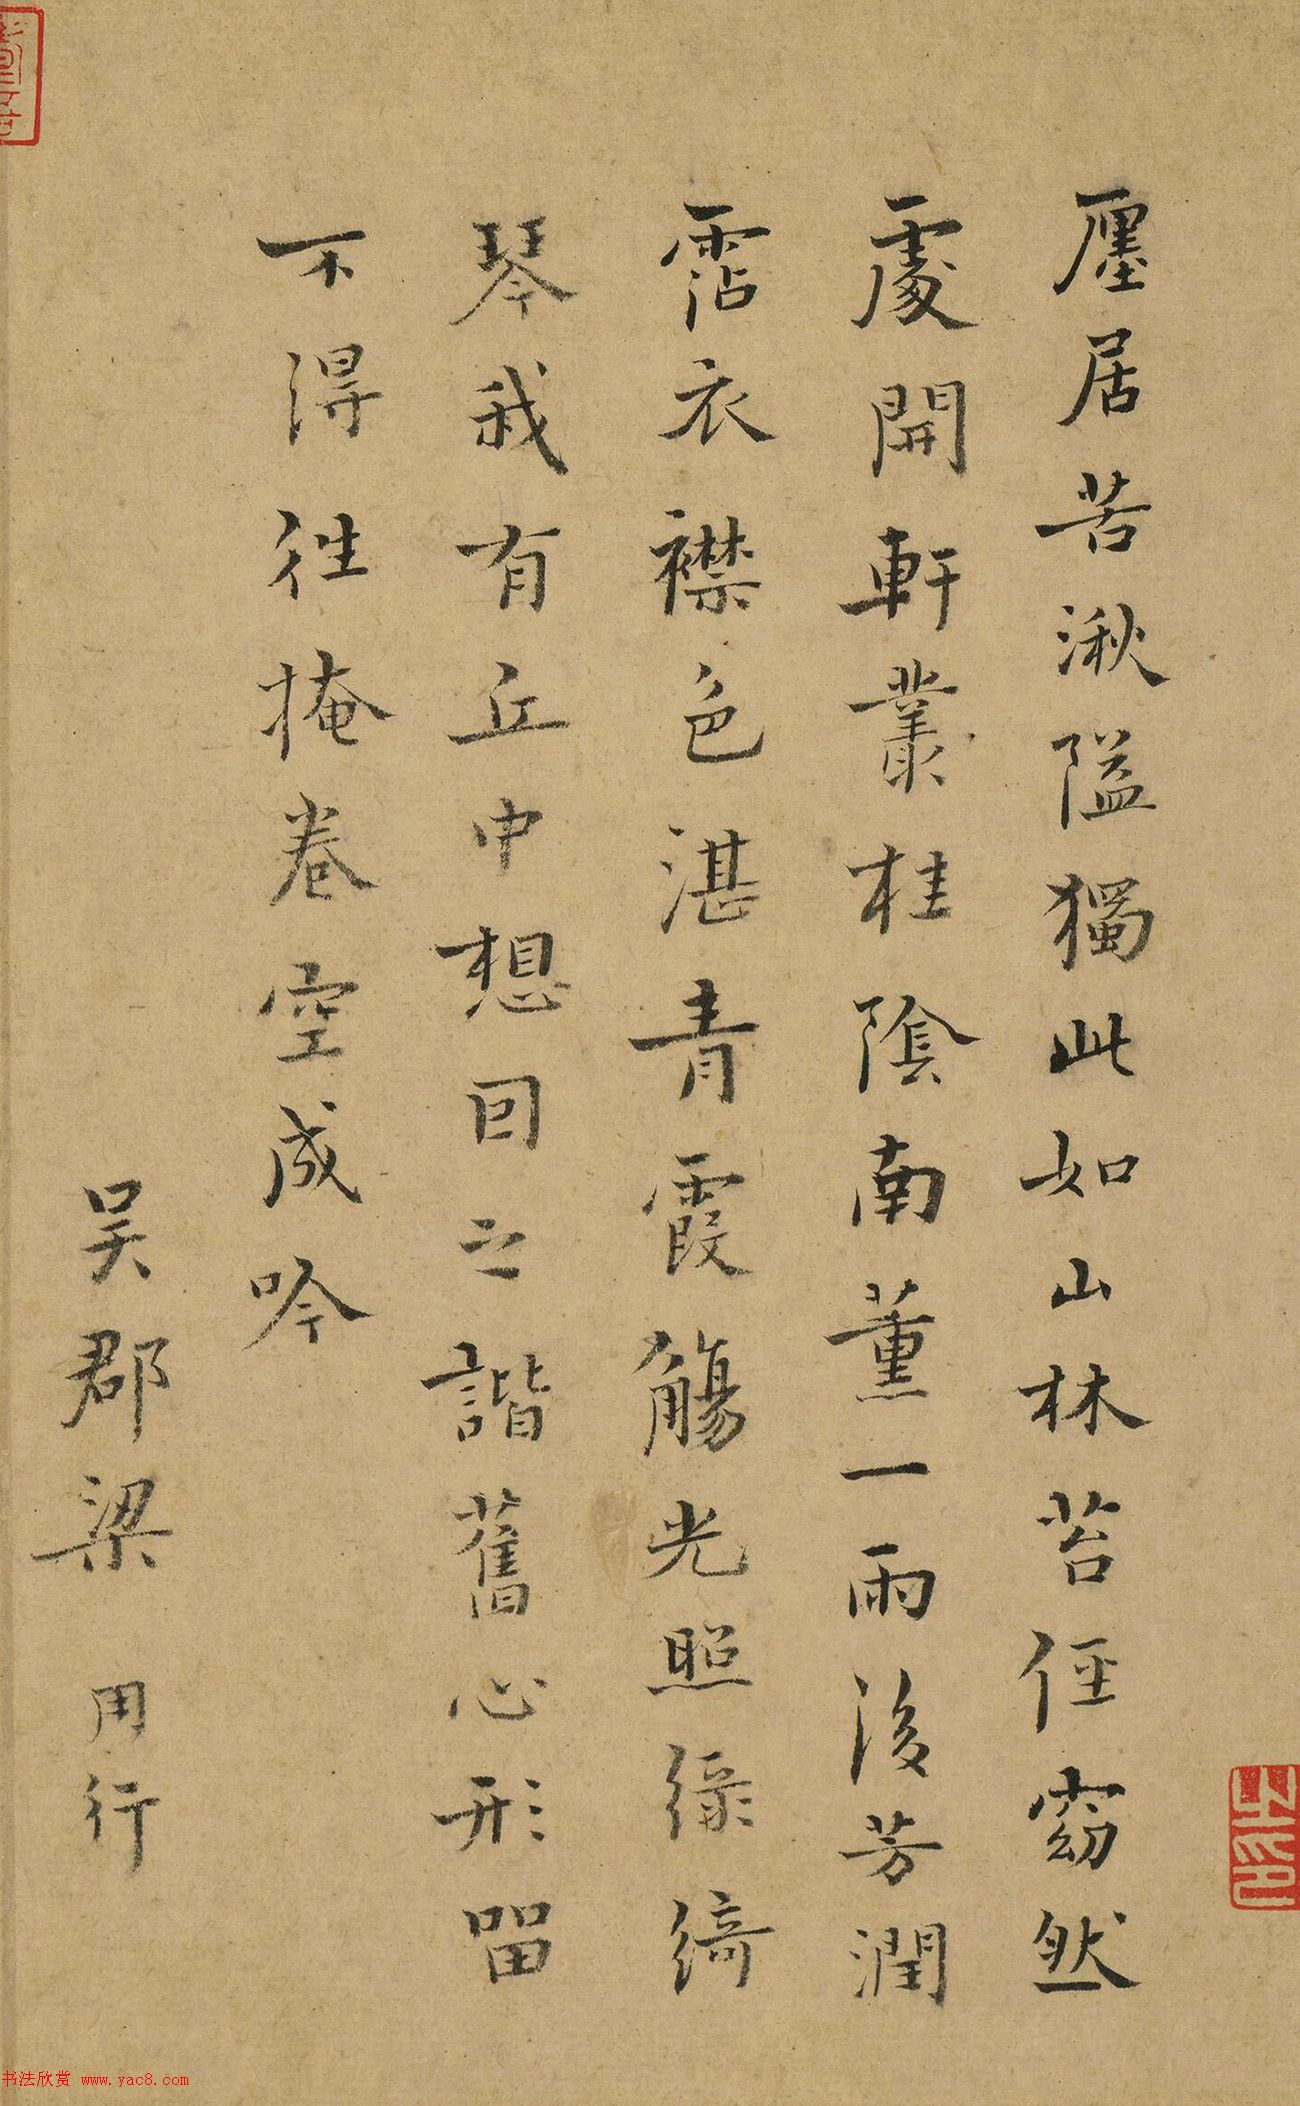 廛居苦湫隘獨此如山林苔徑窈然
處開軒叢桂陰南薰一雨後芳潤
霑衣襟色湛青霞觴光照綠綺
琴我有丘中想因之諧舊心形留
不得往掩卷空成吟
吳郡梁用行
書法欣赏 www.yac8.com